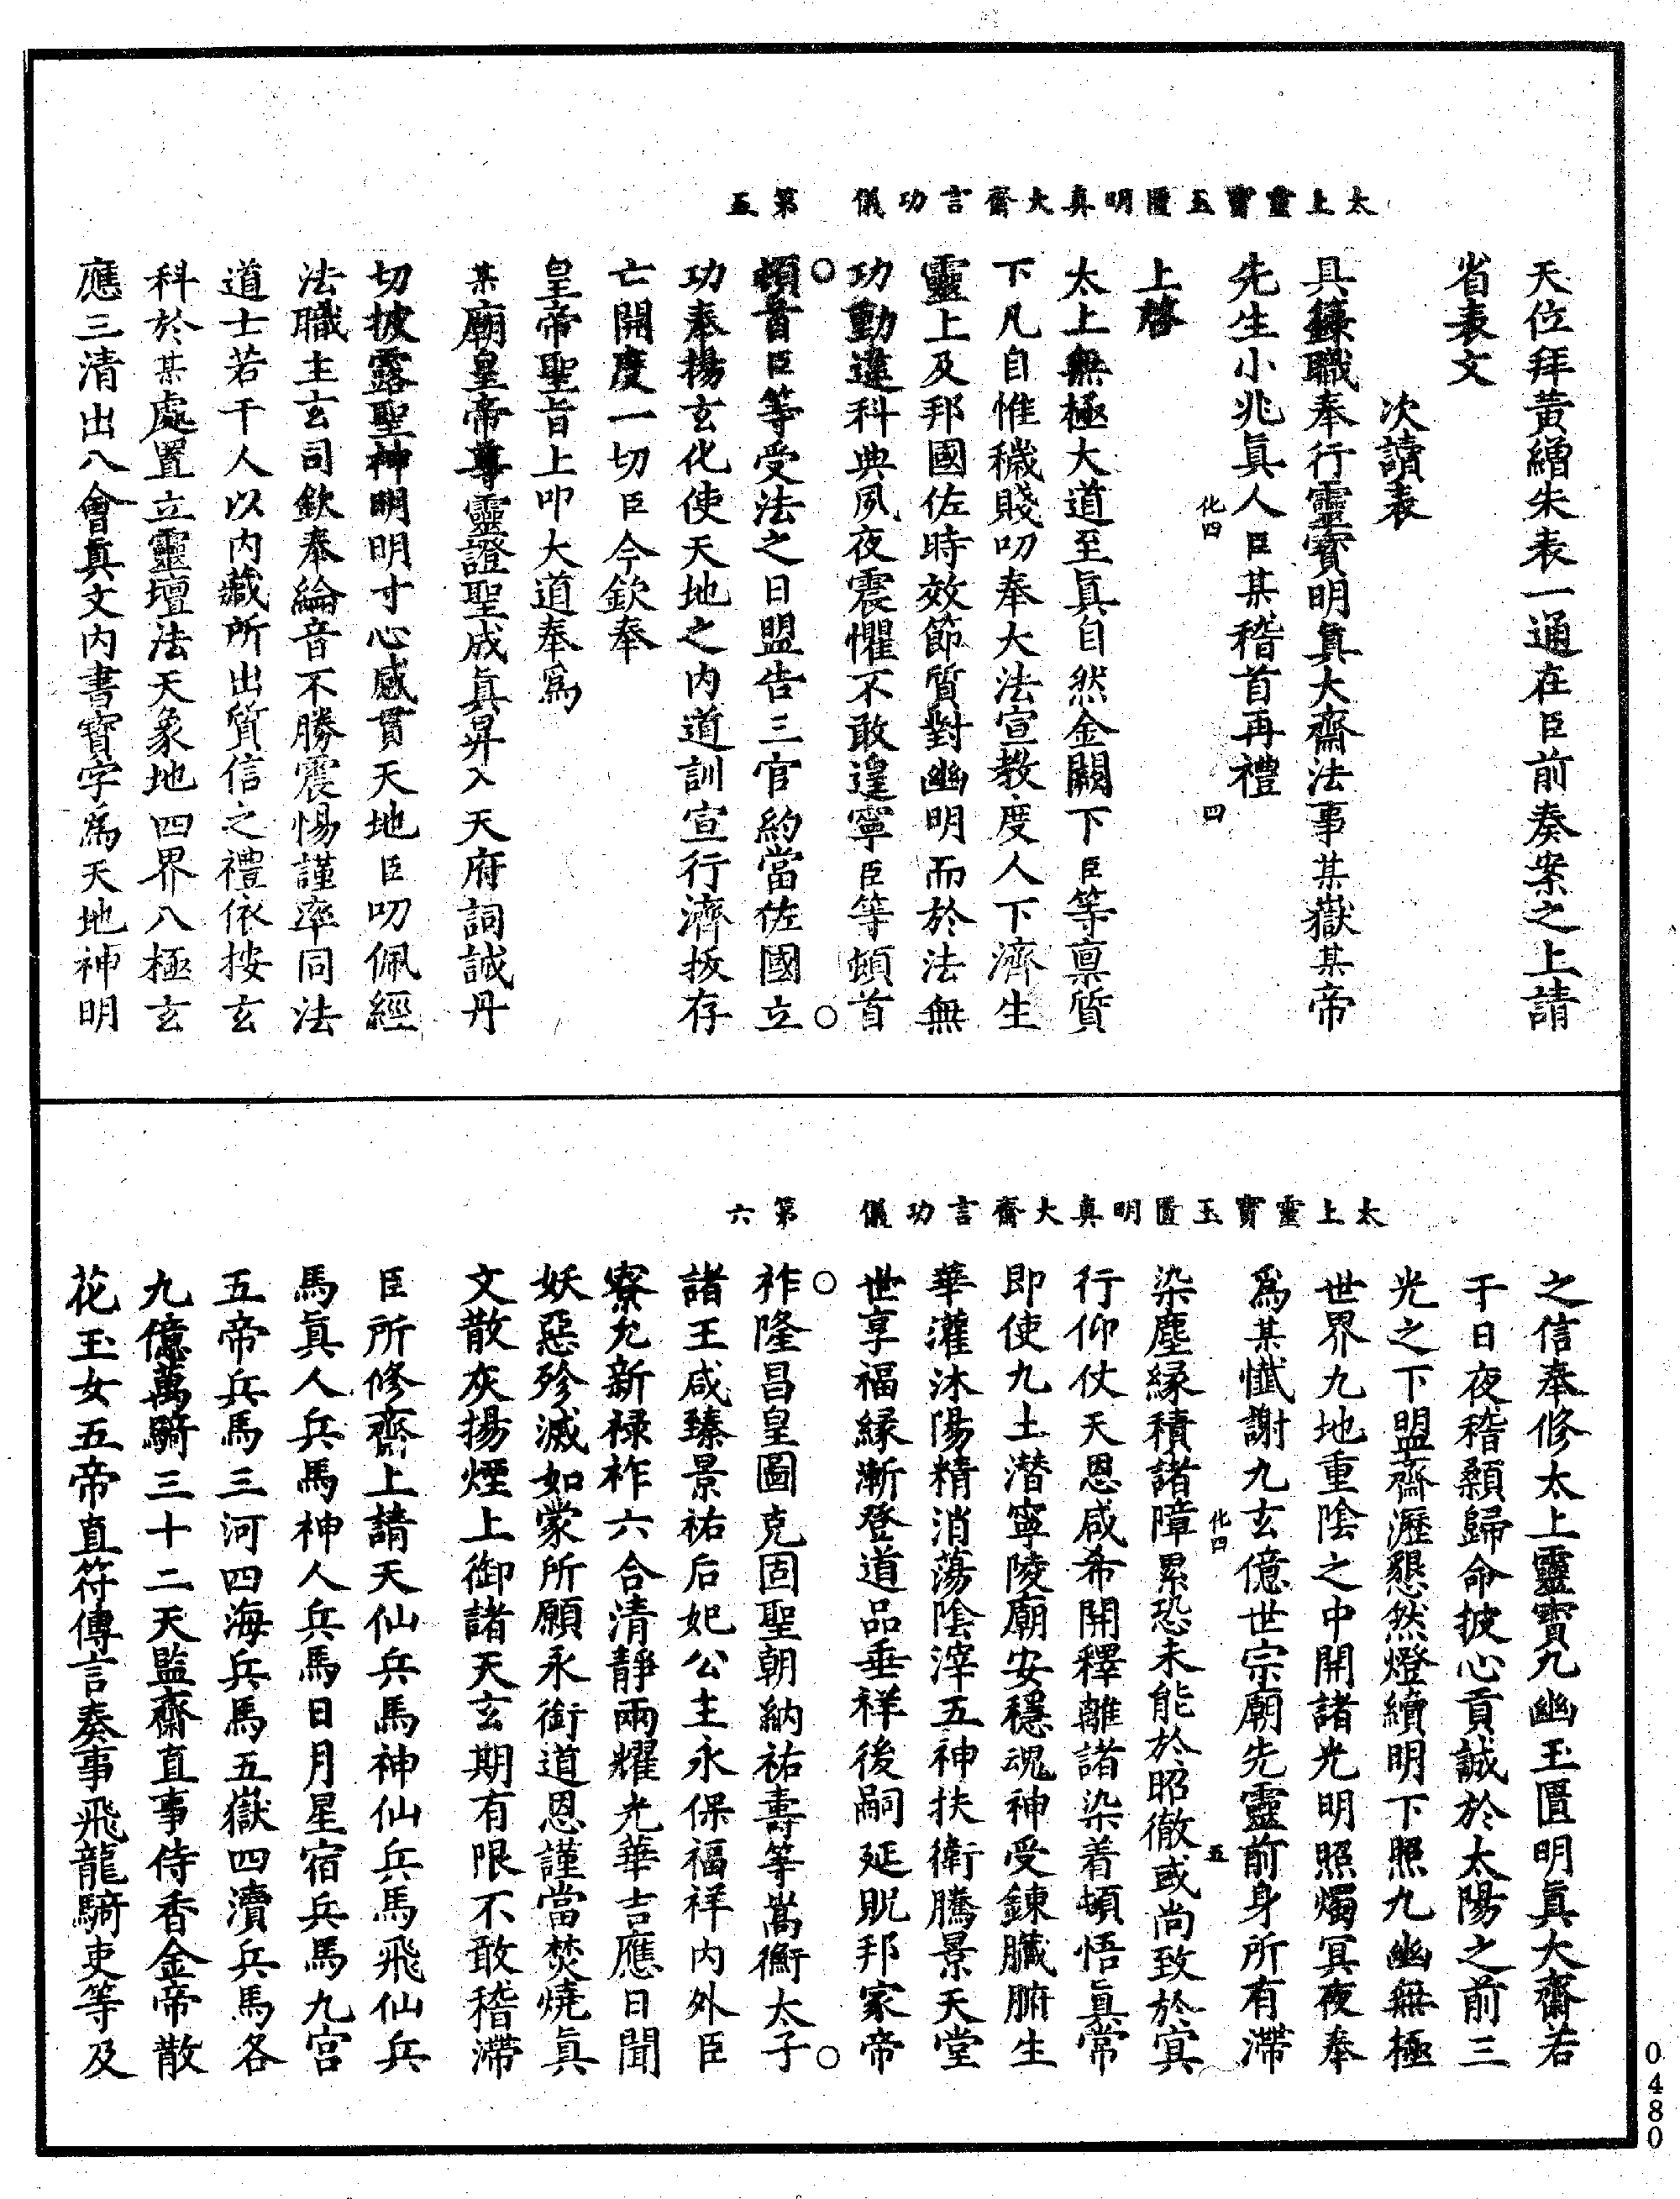 太上靈寶玉匱明真大齋言功儀 第五
天位拜黄繒朱表一通在臣前奏案之上請
省表文
次讀表
具籙職奉行靈寳明眞大齋法事某嶽某帝
先生小兆眞人臣某稽首再禮
化四
四
上啓
太上無極大道至眞自然金闕下臣等禀質
下凡自惟穢賤叨奉大法宣教度人下濟生
靈上及邦國佐時效節質對幽明而於法無
功動違科典夙夜震懼不敢遑寧臣等頓首
頓首臣等受法之日盟告三官約當佐國立
功奉揚玄化使天地之内道訓宣行濟拔存
亡開度一切臣今欽奉
皇帝聖旨上叩大道奉爲
某廟皇帝尊靈證聖成眞昇入天府詞誠丹
切披露聖神明明寸心感貫天地臣叨佩經
法職主玄司欽奉綸音不勝震惕謹率同法
道士若干人以内藏所出質信之禮依按玄
科於某處置立靈壇法天象地四界八極玄
應三清出八會真文内書寳字爲天地神明
太上靈寶玉匱明真大齋言功儀 第六
之信奉修太上靈寳九幽玉匱明眞大齋若
干日夜稽顙歸命披心貢誠於太陽之前三
光之下盟齋瀝懇然燈續明下照九幽無極
世界九地重陰之中開諸光明照燭冥夜奉
爲某懴謝九玄億世宗廟先靈前身所有滯
化四
五
染塵縁積諸障累恐未能於昭徹或尚致於冥
行仰仗天恩咸希開釋離諸染着頓悟眞常
即使九土潜寧陵廟安穩魂神受鍊臟腑生
華灌沐陽精消蕩陰滓五神扶衛騰景天堂
世享福縁漸登道品垂祥後嗣延貺邦家帝
祚隆昌皇圖克固聖朝納祐壽等嵩衡太子
諸王咸臻景祐后妃公主永保福祥内外臣
寮允新禄祚六合清静兩耀光華吉應日聞
妖惡殄滅如蒙所願永銜道恩謹當焚燒眞
文散灰揚煙上御諸天玄期有限不敢稽滯
臣所修齋上請天仙兵馬神仙兵馬飛仙兵
馬眞人兵馬神人兵馬日月星宿兵馬九宫
五帝兵馬三河四海兵馬五嶽四瀆兵馬各
九億萬騎三十二天監齋直事侍香金帝散
花玉女五帝直符傳言奏事飛龍騎吏等及
0480